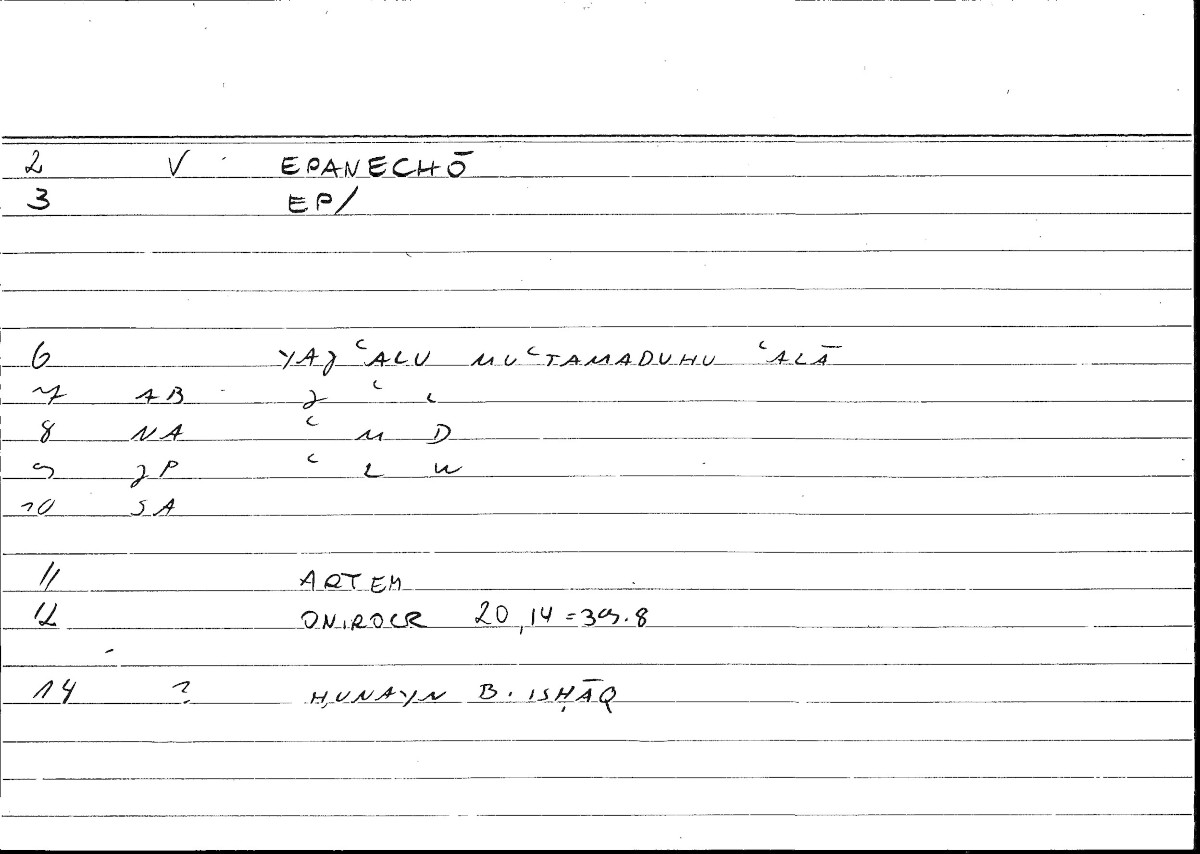 2 V EPANECHŌ
3 EP/
6 YAJʿALU MUʿTAMADUHU ʿALĀ
7 AB J ʿ L
8 NA ʿ M D
9 JP ʿ L W
10 SA
11 ARTEM
12 ONIROCR 20,14=39.8
14 ? ḤUNAYN B. ISḤĀQ